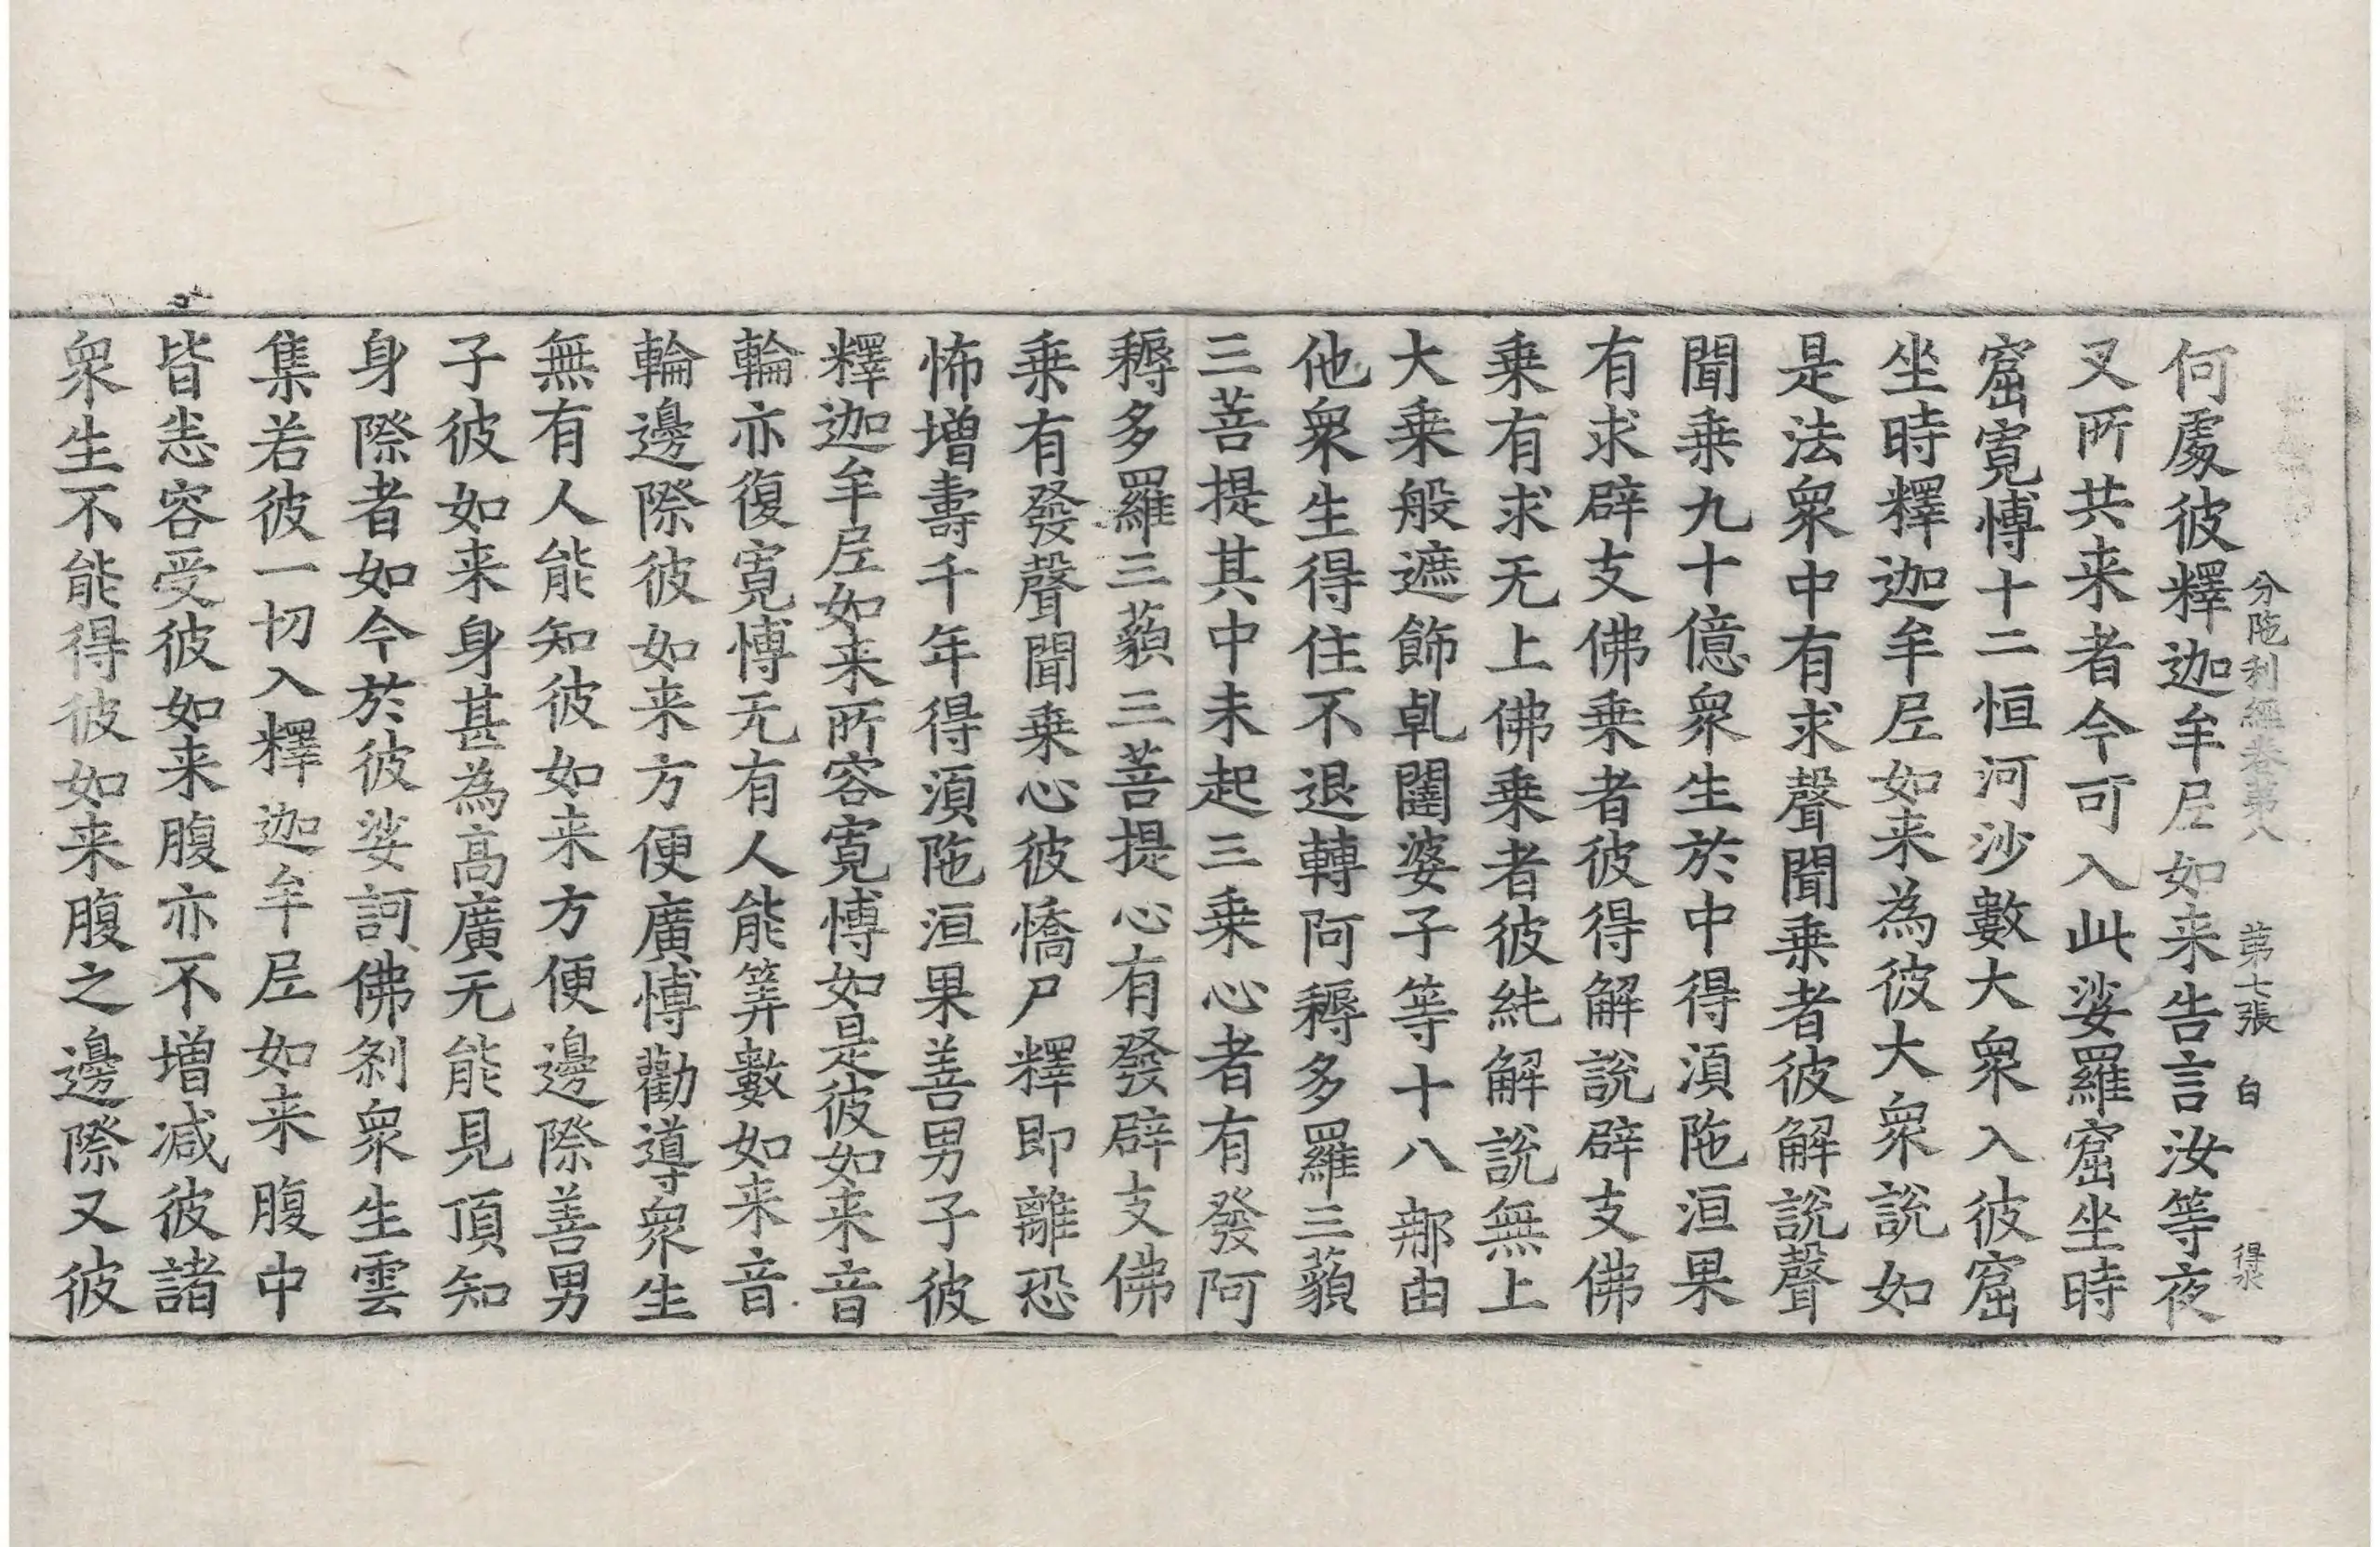 何處彼釋迦牟𡰱如来告言汝等夜
分陁利經卷苐八 苐七張 白 得水
叉所共来者今可入此娑羅窟坐時
窟寛愽十二恒河沙數大衆入彼窟
坐時釋迦牟𡰱如来為彼大衆說如
是法衆中有求聲聞乗者彼解說聲
聞乗九十億衆生於中得湏陁洹果
有求辟支佛乗者彼得解說辟支佛
乗有求无上佛乗者彼純解說無上
大乗般遮飾乹闥婆子等十八那由
他衆生得住不退轉阿耨多羅三藐
三菩提其中未起三乗心者有發阿
耨多羅三藐三菩提心有發辟支佛
乗有發聲聞乗心彼憍尸釋即離恐
怖増壽千年得湏陁洹果善男子彼
釋迦牟𡰱如来所容寛愽如是彼如来音
輪亦復寛愽无有人能筭數如来音
輪邊際彼如来方便廣愽勸導衆生
無有人能知彼如来方便邊際善男
子彼如来身甚為髙廣无能見頂知
身際者如今於彼娑訶佛刹衆生雲
集若彼一切入釋迦牟𡰱如来腹中
皆悉容受彼如来腹亦不增减彼諸
衆生不能得彼如来腹之邊際又彼